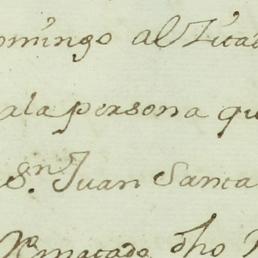 omingo al Zita
ala persona qu
Sn. Juan Santa
Rmatado dho